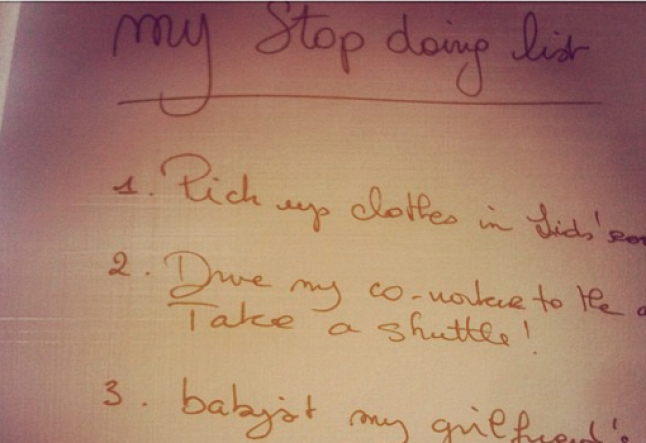 my Stop doing list
1. Pick up clothes in kids'
2. Drive my co-worker to the
Take a shuttle!
3. babysit my girlfriend's